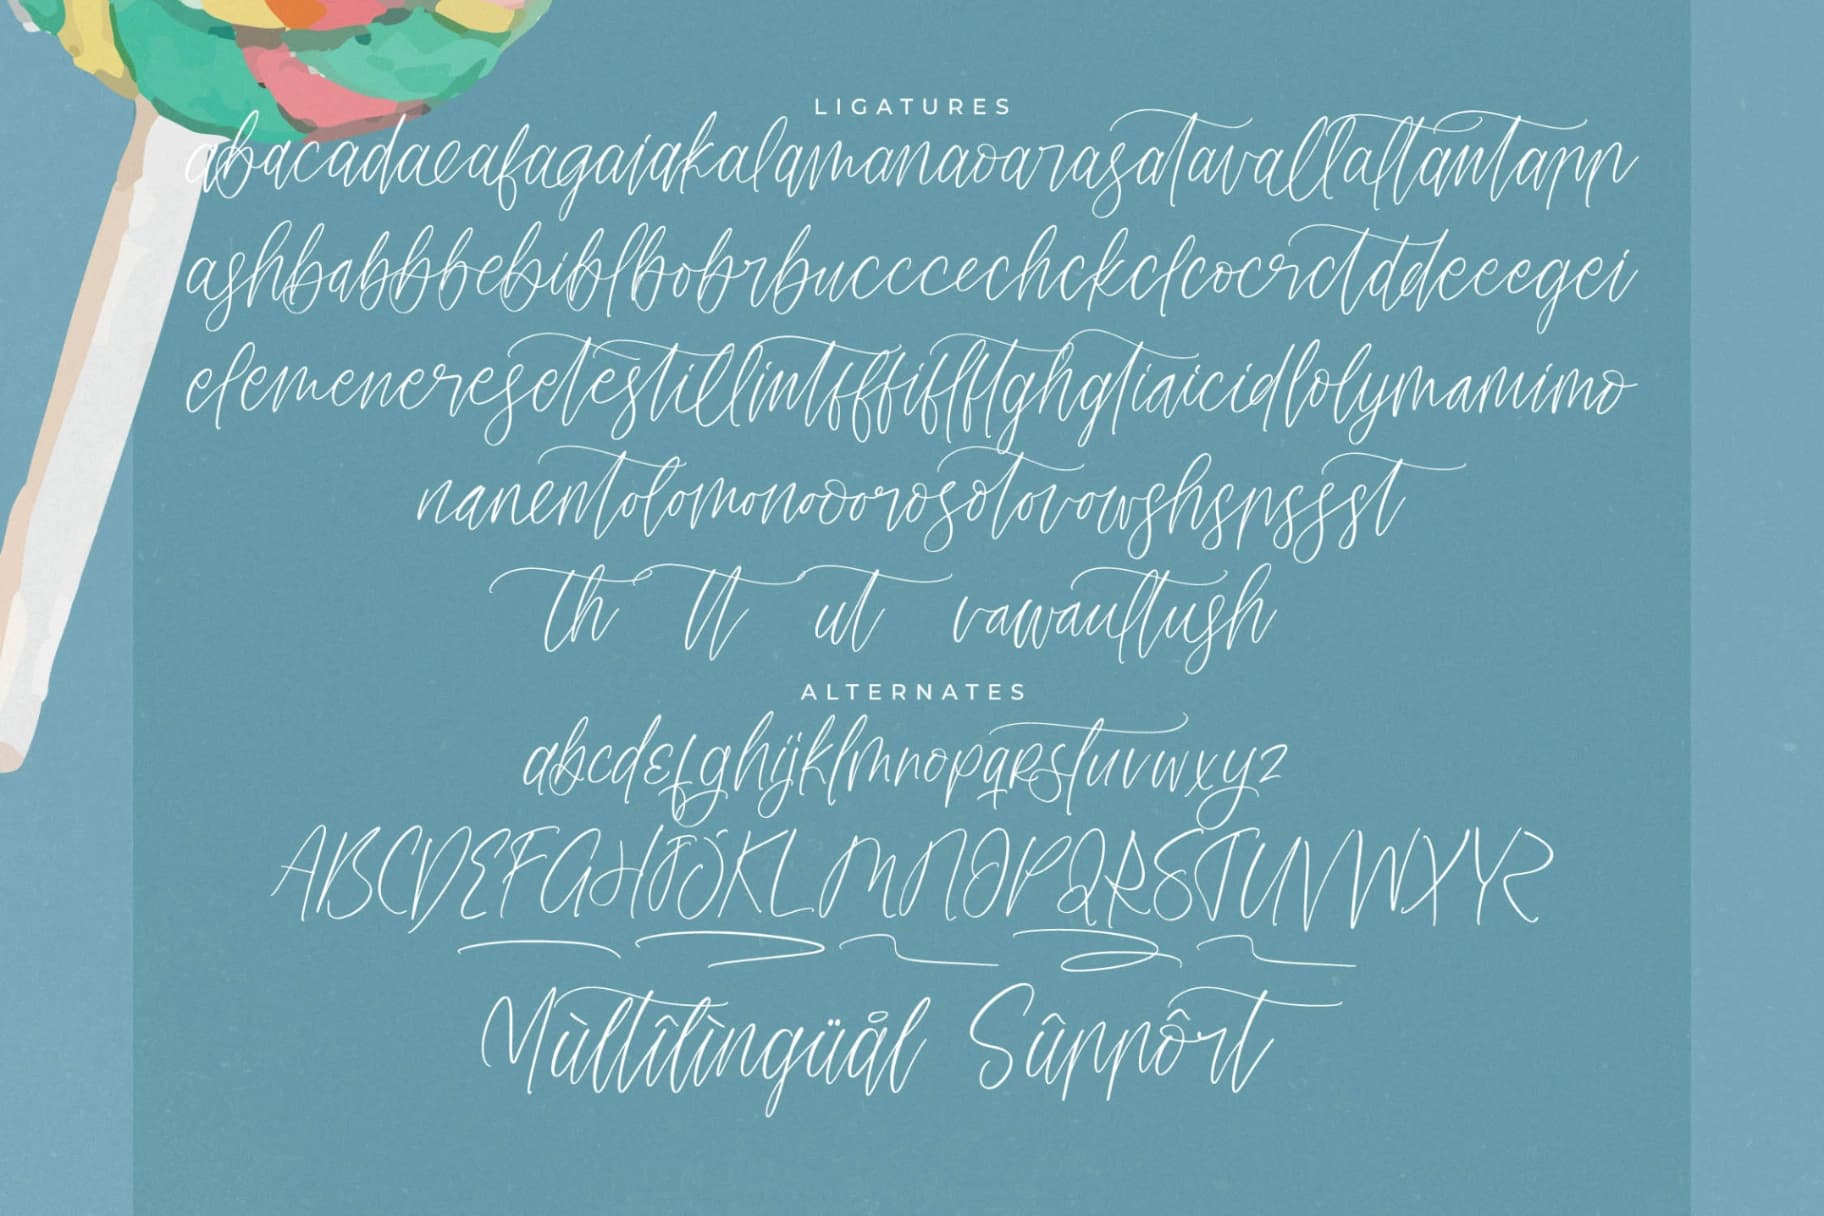 LIGATURES
abacadaeafagaiakalamanaoarasatavallaltantapp
ashbabbbebiblbobrbucccechckclcocrctdddeeegei
elemeneresetestillintfffiflftghgtiaicidlolymamimo
nanentolomonooorosotovowshspssst
th tt ut vawaultush
ALTERNATES
abcdefghijklmnopqrstuvwxyz
ABCDEFGHIJKLMNOPQRSTUVWXYZ
Mùltîlìngüål Sûppôrt